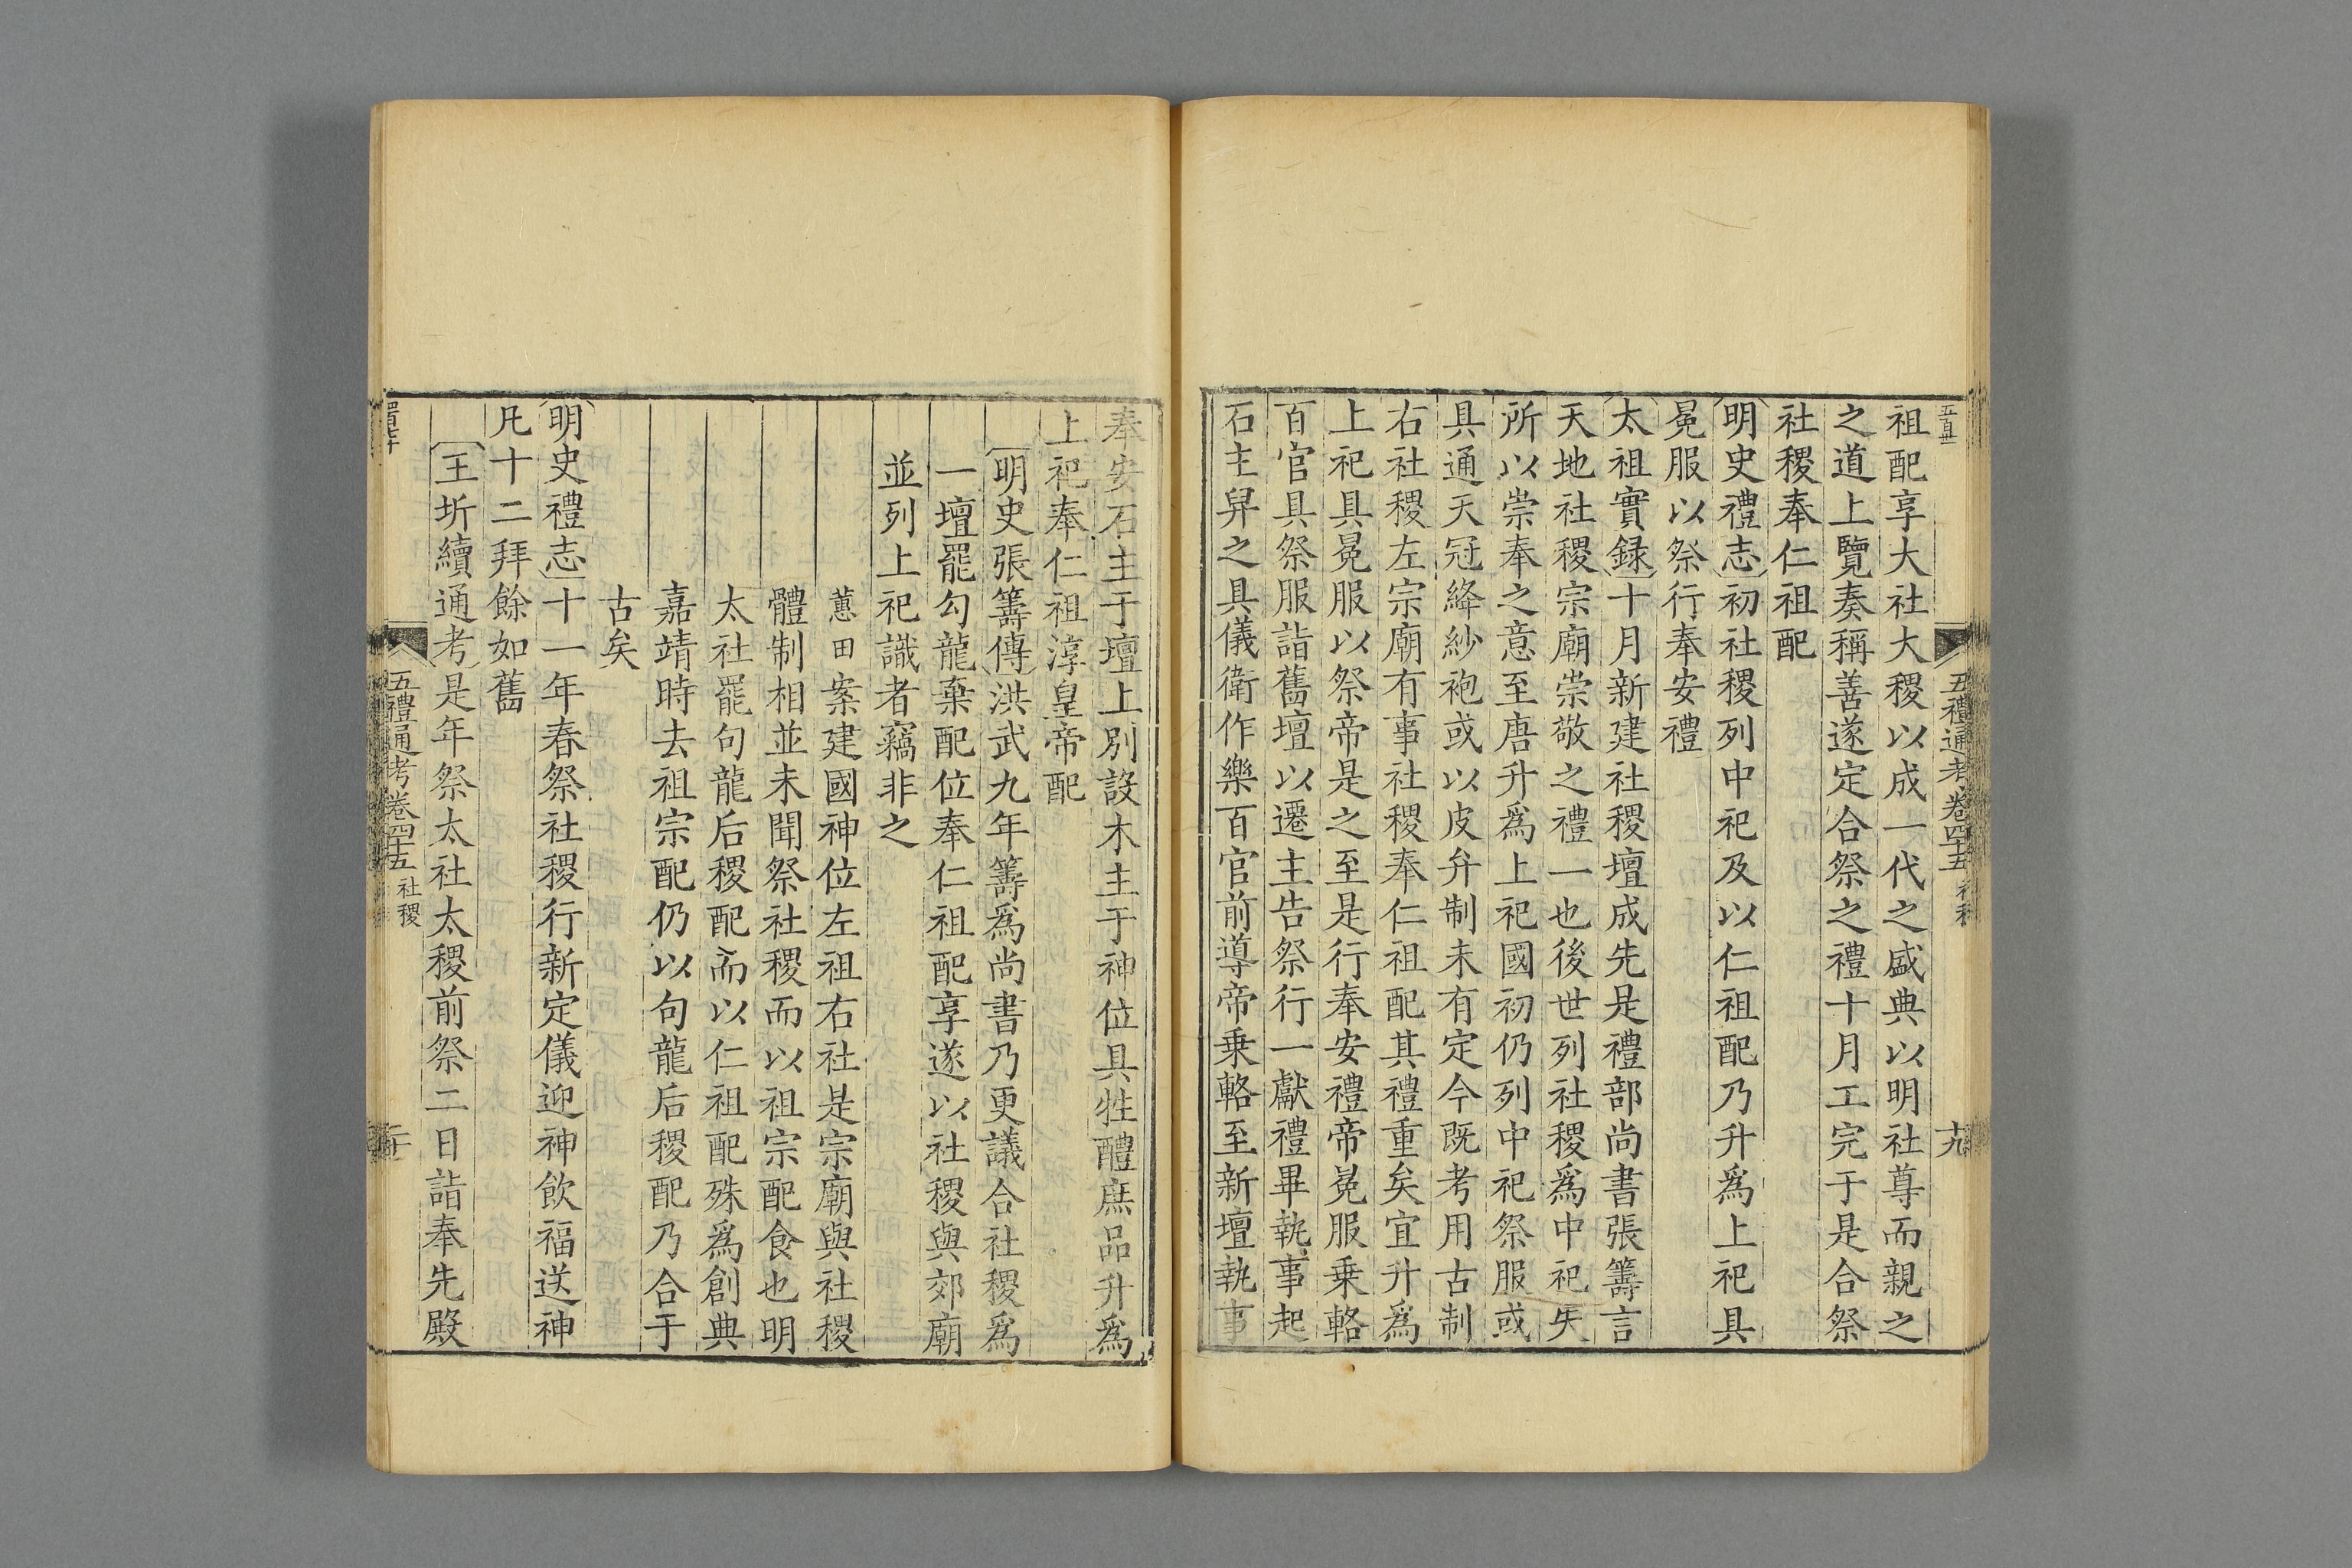 五禮通考卷四十五 社稷
十九
祖配享大社大稷以成一代之盛典以明社尊而親之
之道上覽奏稱善遂定合祭之禮十月工完于是合祭
社稷奉仁祖配
明史禮志初社稷列中祀及以仁祖配乃升爲上祀具
冕服以祭行奉安禮
太祖實録十月新建社稷壇成先是禮部尚書張籌言
天地社稷宗廟崇敬之禮一也後世列社稷爲中祀失
所以崇奉之意至唐升爲上祀國初仍列中祀祭服或
具通天冠絳紗袍或以皮弁制未有定今既考用古制
右社稷左宗廟有事社稷奉仁祖配其禮重矣宜升爲
上祀具冕服以祭帝是之至是行奉安禮帝冕服乗輅
百官具祭服詣舊壇以遷主告祭行一獻禮畢執事起
石主舁之具儀衛作樂百官前導帝乗輅至新壇執事
奉安石主于壇上別設木主于神位具牲醴庶品升爲
上祀奉仁祖淳皇帝配
明史張籌傳洪武九年籌爲尚書乃更議合社稷爲
一壇罷勾龍棄配位奉仁祖配享遂以社稷與郊廟
並列上祀識者竊非之
蕙田案建國神位左祖右社是宗廟與社稷
體制相並未聞祭社稷而以祖宗配食也明
太社罷句龍后稷配而以仁祖配殊爲創典
嘉靖時去祖宗配仍以句龍后稷配乃合于
古矣
明史禮志十一年春祭社稷行新定儀迎神飲福送神
凡十二拜餘如舊
王圻續通考是年祭太社太稷前祭二日詣奉先殿
五禮通考卷四十五 社稷
二十